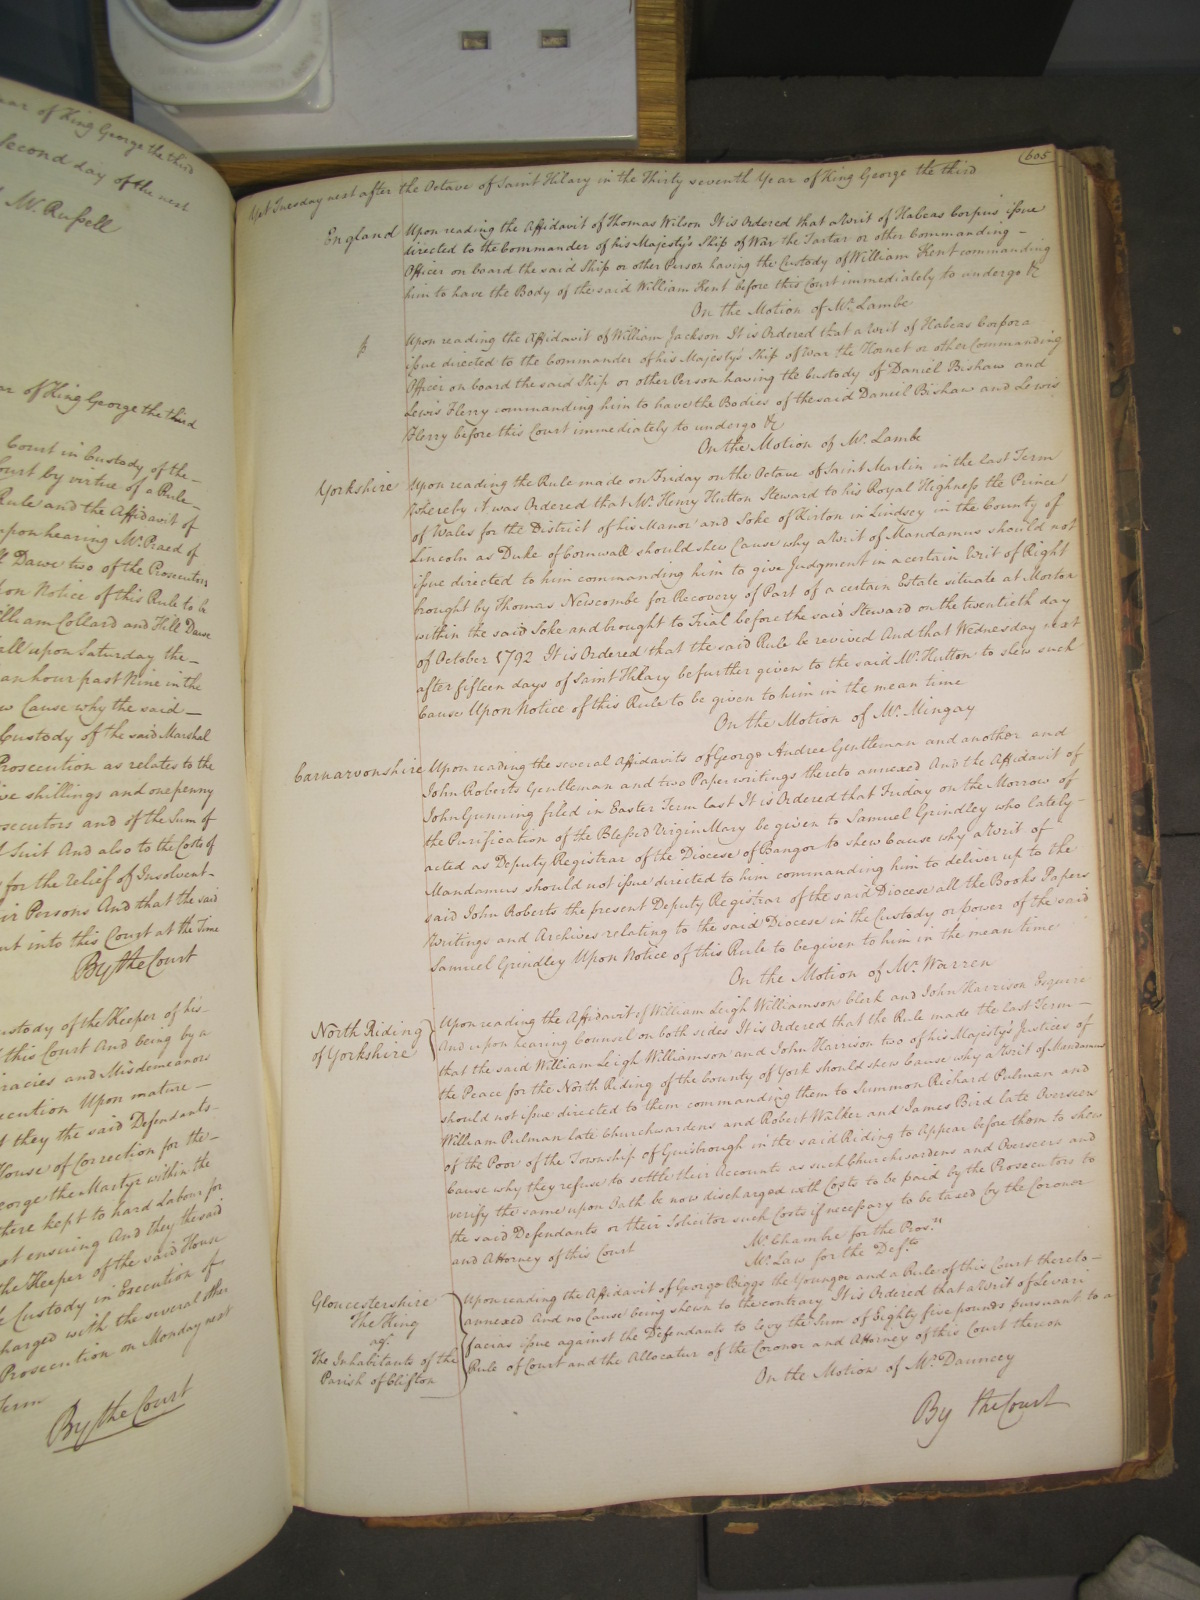 ear of King George the third
Second day of the next
Mr. Russell
ar of King George the third
Court in Custody of the
Court by virtue of a Rule
Rule and the Affidavit of
upon hearing Mr. Praed of
Dawe two of the Prosecutors
on Notice of this Rule to be
William Collard and Hill Dawe
all upon Saturday the
an hour past Nine in the
w Cause why the said
Custody of the said Marshal
Prosecution as relates to the
ve shillings and one penny
osecutors and of the Sum of
Suit And also to the Costs of
for the relief of Insolvent
ir Persons And that the said
ut into this Court at the Time
By the Court
ustody of the Keeper of his
this Court And being by a
racies and Misdemeanors
ecution Upon mature
they the said Defendants
House of Correction for the
eorge the Martyr within the
there kept to hard Labour for
xt ensuing And they the said
the Keeper of the said House
Custody in Execution of
harged with the several other
Prosecution on Monday next
Term
By the Court
605
Yet Tuesday next after the Octave of Saint Hilary in the Thirty seventh Year of King George the third
England Upon reading the Affidavit of Thomas Wilson It is Ordered that a Writ of Habeas Corpus issue
directed to the Commander of his Majesty's Ship of War the Tartar or other Commanding
Officer on board the said Ship or other Person having the Custody of William Kent commanding
him to have the Body of the said William Kent before this Court immediately to undergo &c
On the Motion of Mr. Lambe
Upon reading the Affidavit of William Jackson It is Ordered that a Writ of Habeas Corpora
issue directed to the Commander of his Majesty's Ship of War the Hornet or other Commanding
Officer on board the said Ship or other Person having the Custody of Daniel Bishaw and
Lewis Flerry commanding him to have the Bodies of the said Daniel Bishaw and Lewis
Flerry before this Court immediately to undergo &c
On the Motion of Mr. Lambe
Yorkshire Upon reading the Rule made on Friday on the Octave of Saint Martin in the last Term
Whereby it was Ordered that Mr. Henry Hutton Steward to his Royal Highness the Prince
of Wales for the District of his Manor and Soke of Kirton in Lindsey in the County of
Lincoln as Duke of Cornwall should shew Cause why a Writ of Mandamus should not
issue directed to him commanding him to give Judgment in a certain Writ of Right
brought by Thomas Newcombe for Recovery of Part of a certain Estate situate at Morton
within the said Soke and brought to Trial before the said Steward on the twentieth day
of October 1792 It is Ordered that the said Rule be revived And that Wednesday next
after fifteen days of Saint Hilary be further given to the said Mr. Hutton to shew such
Cause Upon Notice of this Rule to be given to him in the mean time
On the Motion of Mr. Mingay
Carnarvonshire Upon reading the several Affidavits of George Andree Gentleman and another and
John Roberts Gentleman and two Paper writings thereto annexed And the Affidavit of
John Gunning filed in Easter Term last It is Ordered that Friday on the Morrow of
the Purification of the Blessed Virgin Mary be given to Samuel Grindley who lately
acted as Deputy Registrar of the Diocese of Bangor to shew Cause why a Writ of
Mandamus should not issue directed to him commanding him to deliver up to the
said John Roberts the present Deputy Registrar of the said Diocese all the Books Papers
Writings and Archives relating to the said Diocese in the Custody or power of the said
Samuel Grindley Upon Notice of this Rule to be given to him in the mean time
On the Motion of Mr. Warren
North Riding of Yorkshire
Upon reading the Affidavit of William Leigh Williamson Clerk and John Harrison Esquire
And upon hearing Counsel on both sides It is Ordered that the Rule made the last Term
that the said William Leigh Williamson and John Harrison two of his Majesty's Justices of
the Peace for the North Riding of the County of York should shew Cause why a Writ of Mandamus
should not issue directed to them commanding them to Summon Richard Pulman and
William Pulman late Churchwardens and Robert Walker and James Bird late Overseers
of the Poor of the Township of Guisbrough in the said Riding to Appear before them to shew
Cause why they refuse to settle their Accounts as such Churchwardens and Overseers and
verify the same upon Oath be now discharged with Costs to be paid by the Prosecutors to
the said Defendants or their Solicitor such Costs if necessary to be taxed by the Coroner
and Attorney of this Court
Mr. Chambre for the Pros.rs
Mr. Law for the Def.ts
Gloucestershire
The King
agt.
The Inhabitants of the
Parish of Clifton
Upon reading the Affidavit of George Biggs the Younger and a Rule of this Court thereto
annexed And no Cause being shewn to the contrary It is Ordered that a Writ of Levari
facias issue against the Defendants to levy the Sum of Eighty five pounds pursuant to a
Rule of Court and the Allocatur of the Coroner and Attorney of this Court thereon
On the Motion of Mr. Dauncey
By the Court